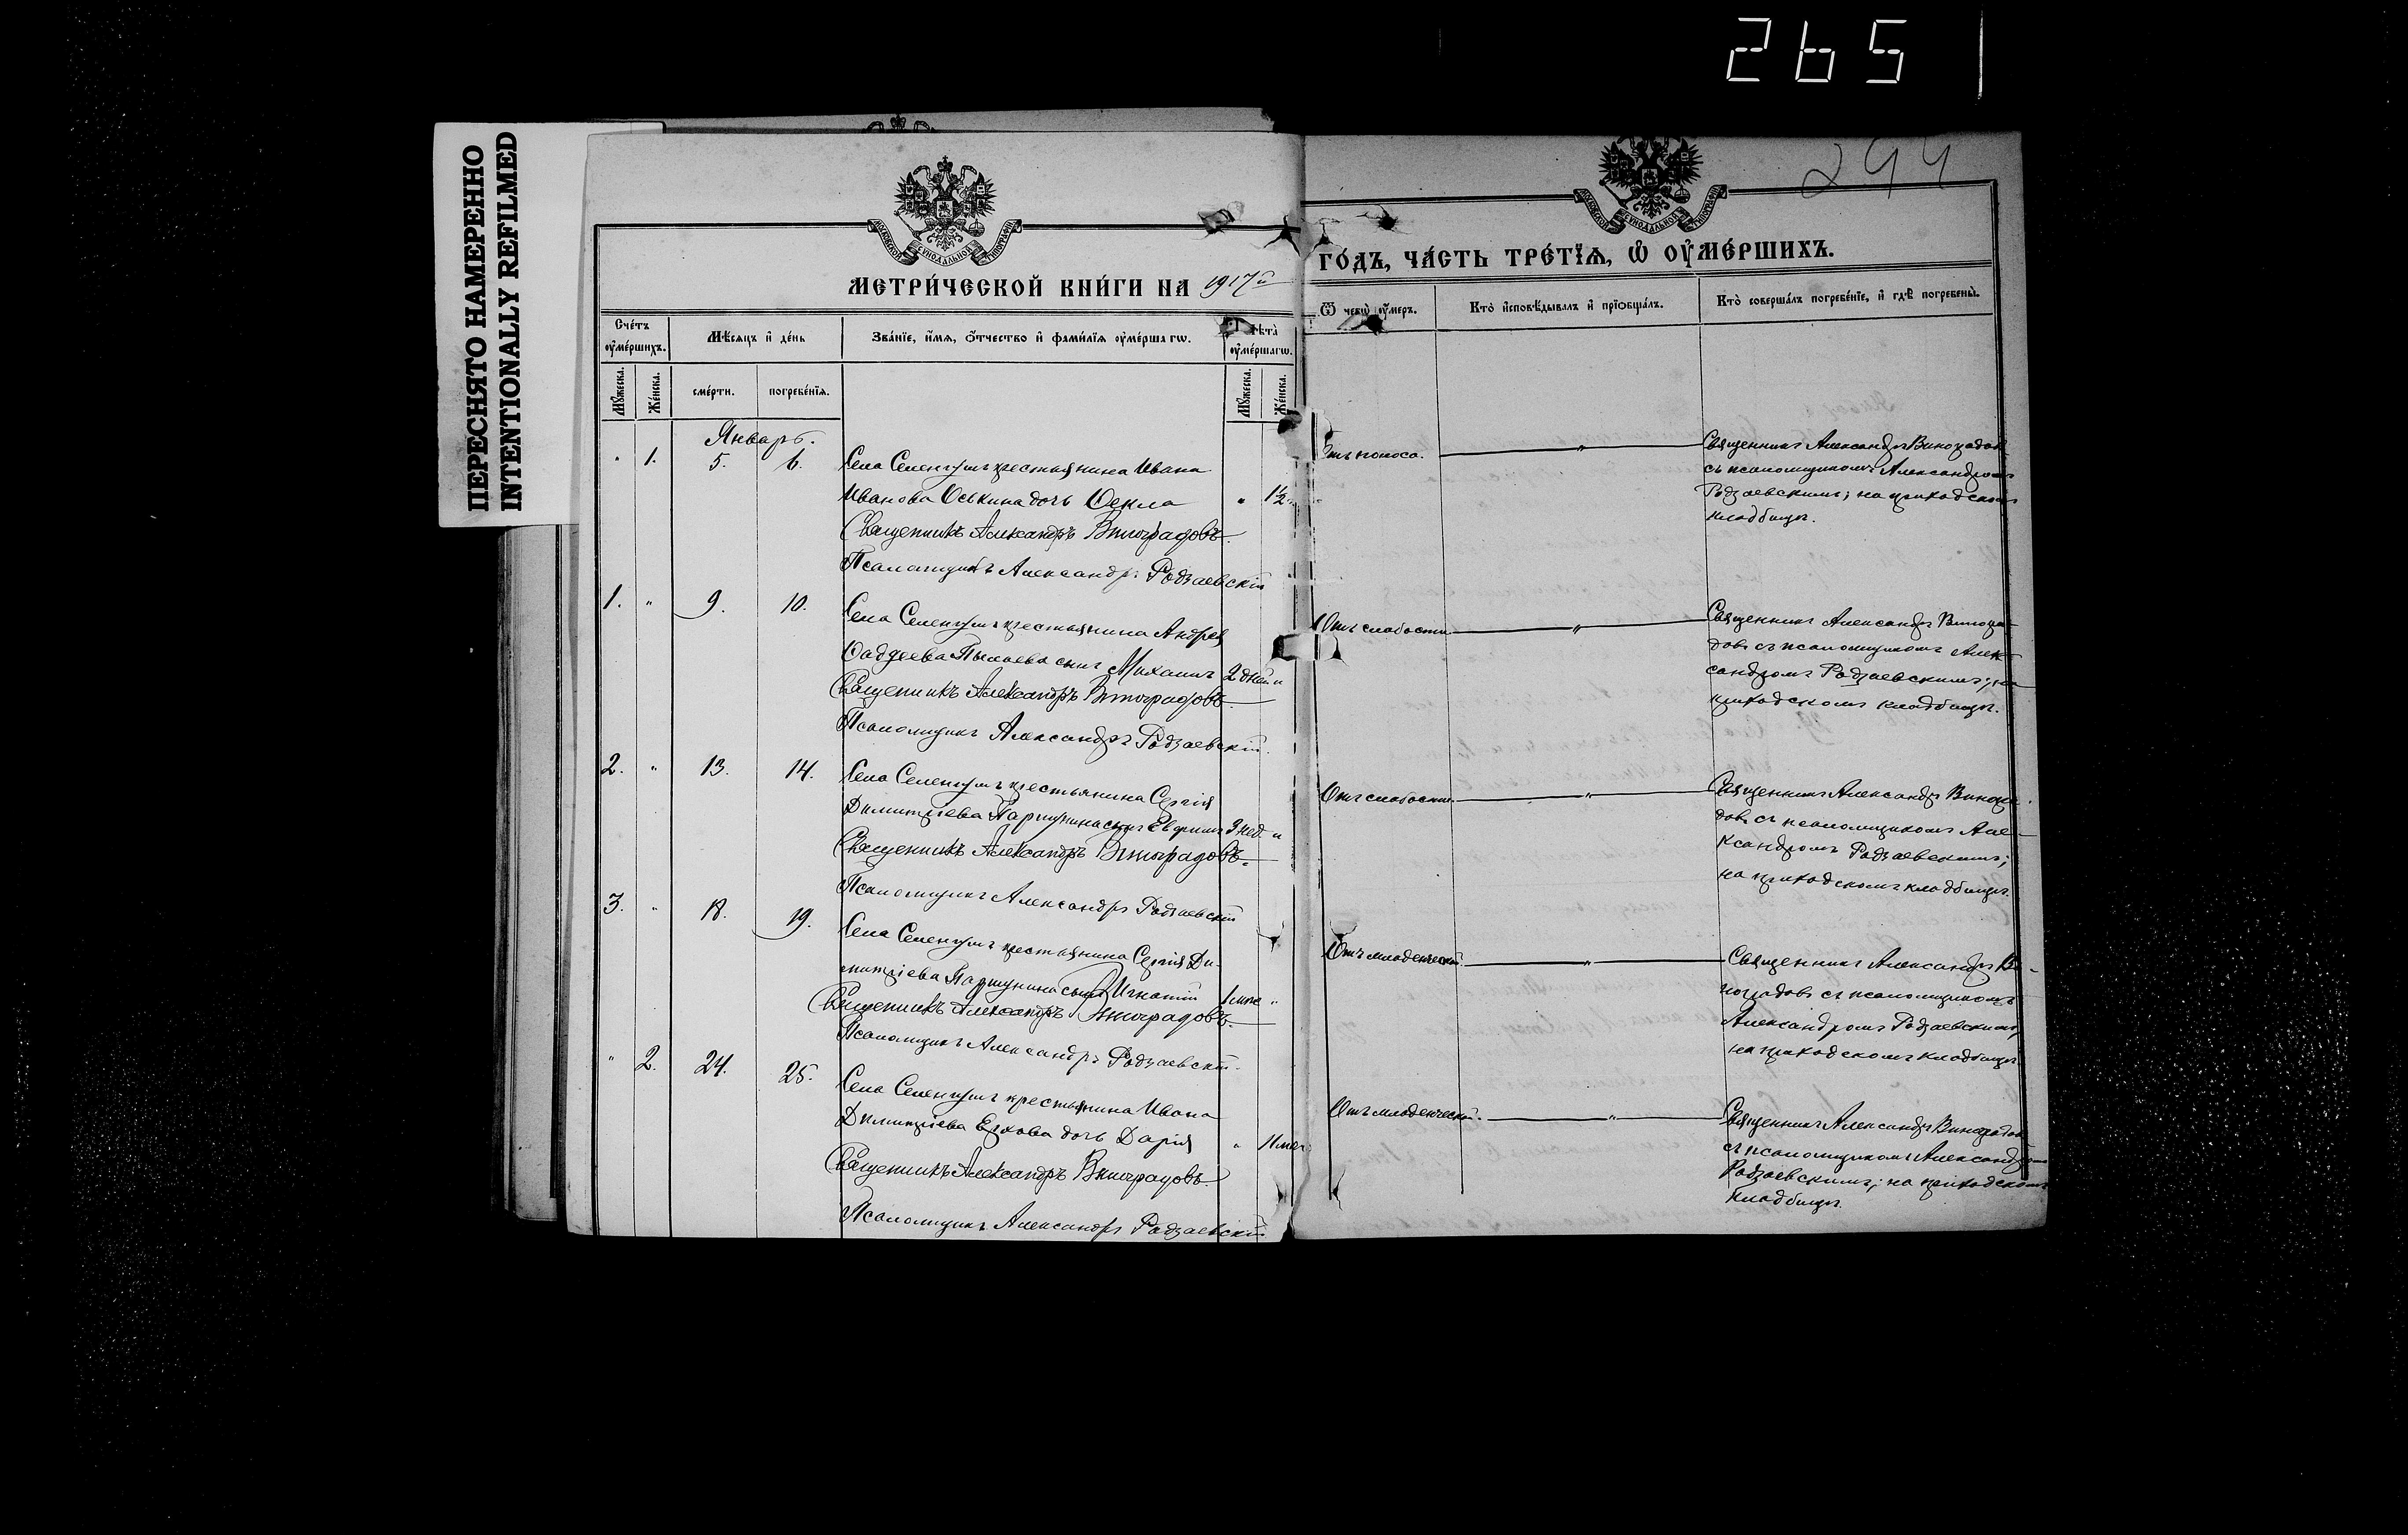 265
ПЕРЕСНЯТО НАМЕРЕННО
INTENTIONALLY REFILMED
294
МОСКОВСКОЙ СУНОДАЛЬНОЙ ТИПОГРАФІИ
МОСКОВСКОЙ СУНОДАЛЬНОЙ ТИПОГРАФІИ
МЕТРИ́ЧЕСКОЙ КНИ́ГИ НА 1917й
ГО́ДЪ, ЧА́СТЬ ТРЕ́ТЇѦ, Ѡ҆ ОУ҆МЕ́РШИХЪ.
Сче́тъ оу҆ме́ршихъ.
Мѣ́сяцъ и҆ де́нь
Зва́нїе, и҆́мѧ, ѻ҆́тчество и҆ фами́лїѧ оу҆ме́ршагѡ.
Лѣ́та оу҆ме́ршагѡ.
Ѿ чегѡ̀ оу҆́меръ.
Кто̀ и҆сповѣ́дывалъ и҆ прїѡбща́лъ.
Кто̀ соверша́лъ погребе́нїе, и҆ гдѣ̀ погребены̀.
Мꙋ́жеска.
Же́нска.
сме́рти.
погребе́нїѧ.
Мꙋ́жеска.
Же́нска.
Январь.
" 1. 5. 6. Села Селенгушъ крестьянина Ивана
Иванова Оськина дочь Ѳекла " 1½
Священникъ Александръ Виноградовъ.
Псаломщикъ Александръ Родзаевскій
Отъ поноса. "
Священникъ Александръ Виноградовъ
съ псаломщикомъ Александромъ
Родзаевскимъ; на приходскомъ
кладбищѣ.
1. " 9. 10. Села Селенгушъ крестьянина Андрея
Ѳаддеева Пылаева сынъ Михаилъ 2 дней "
Священникъ Александръ Виноградовъ.
Псаломщикъ Александръ Родзаевскій.
Отъ слабости "
Священникъ Александръ Виногра-
довъ съ псаломщикомъ Алек-
сандромъ Родзаевскимъ; на
приходскомъ кладбищѣ.
2. " 13. 14. Села Селенгушъ крестьянина Сергія
Димитріева Паршунина сынъ Евфимъ 3 нед. "
Священникъ Александръ Виноградовъ.
Псаломщикъ Александръ Родзаевскій
Отъ слабости. "
Священникъ Александръ Виногра-
довъ съ псаломщикомъ Але-
ксандромъ Родзаевскимъ;
на приходскомъ кладбищѣ.
3. " 18. 19. Села Селенгушъ крестьянина Сергія Ди-
митріева Паршунина сынъ Игнатій 1 мѣс "
Священникъ Александръ Виноградовъ.
Псаломщикъ Александръ Родзаевскій.
Отъ младенческой. "
Священникъ Александръ Ви-
ноградовъ съ псаломщикомъ
Александромъ Родзаевскимъ,
на приходскомъ кладбищѣ.
" 2. 24. 25. Села Селенгушъ крестьянина Ивана
Димитріева Ерхова дочь Дарія " 11 мѣс
Священникъ Александръ Виноградовъ.
Псаломщикъ Александръ Родзаевскій
Отъ младенческой. "
Священникъ Александръ Виноградовъ
съ псаломщикомъ Александромъ
Родзаевскимъ; на приходскомъ
кладбищѣ.